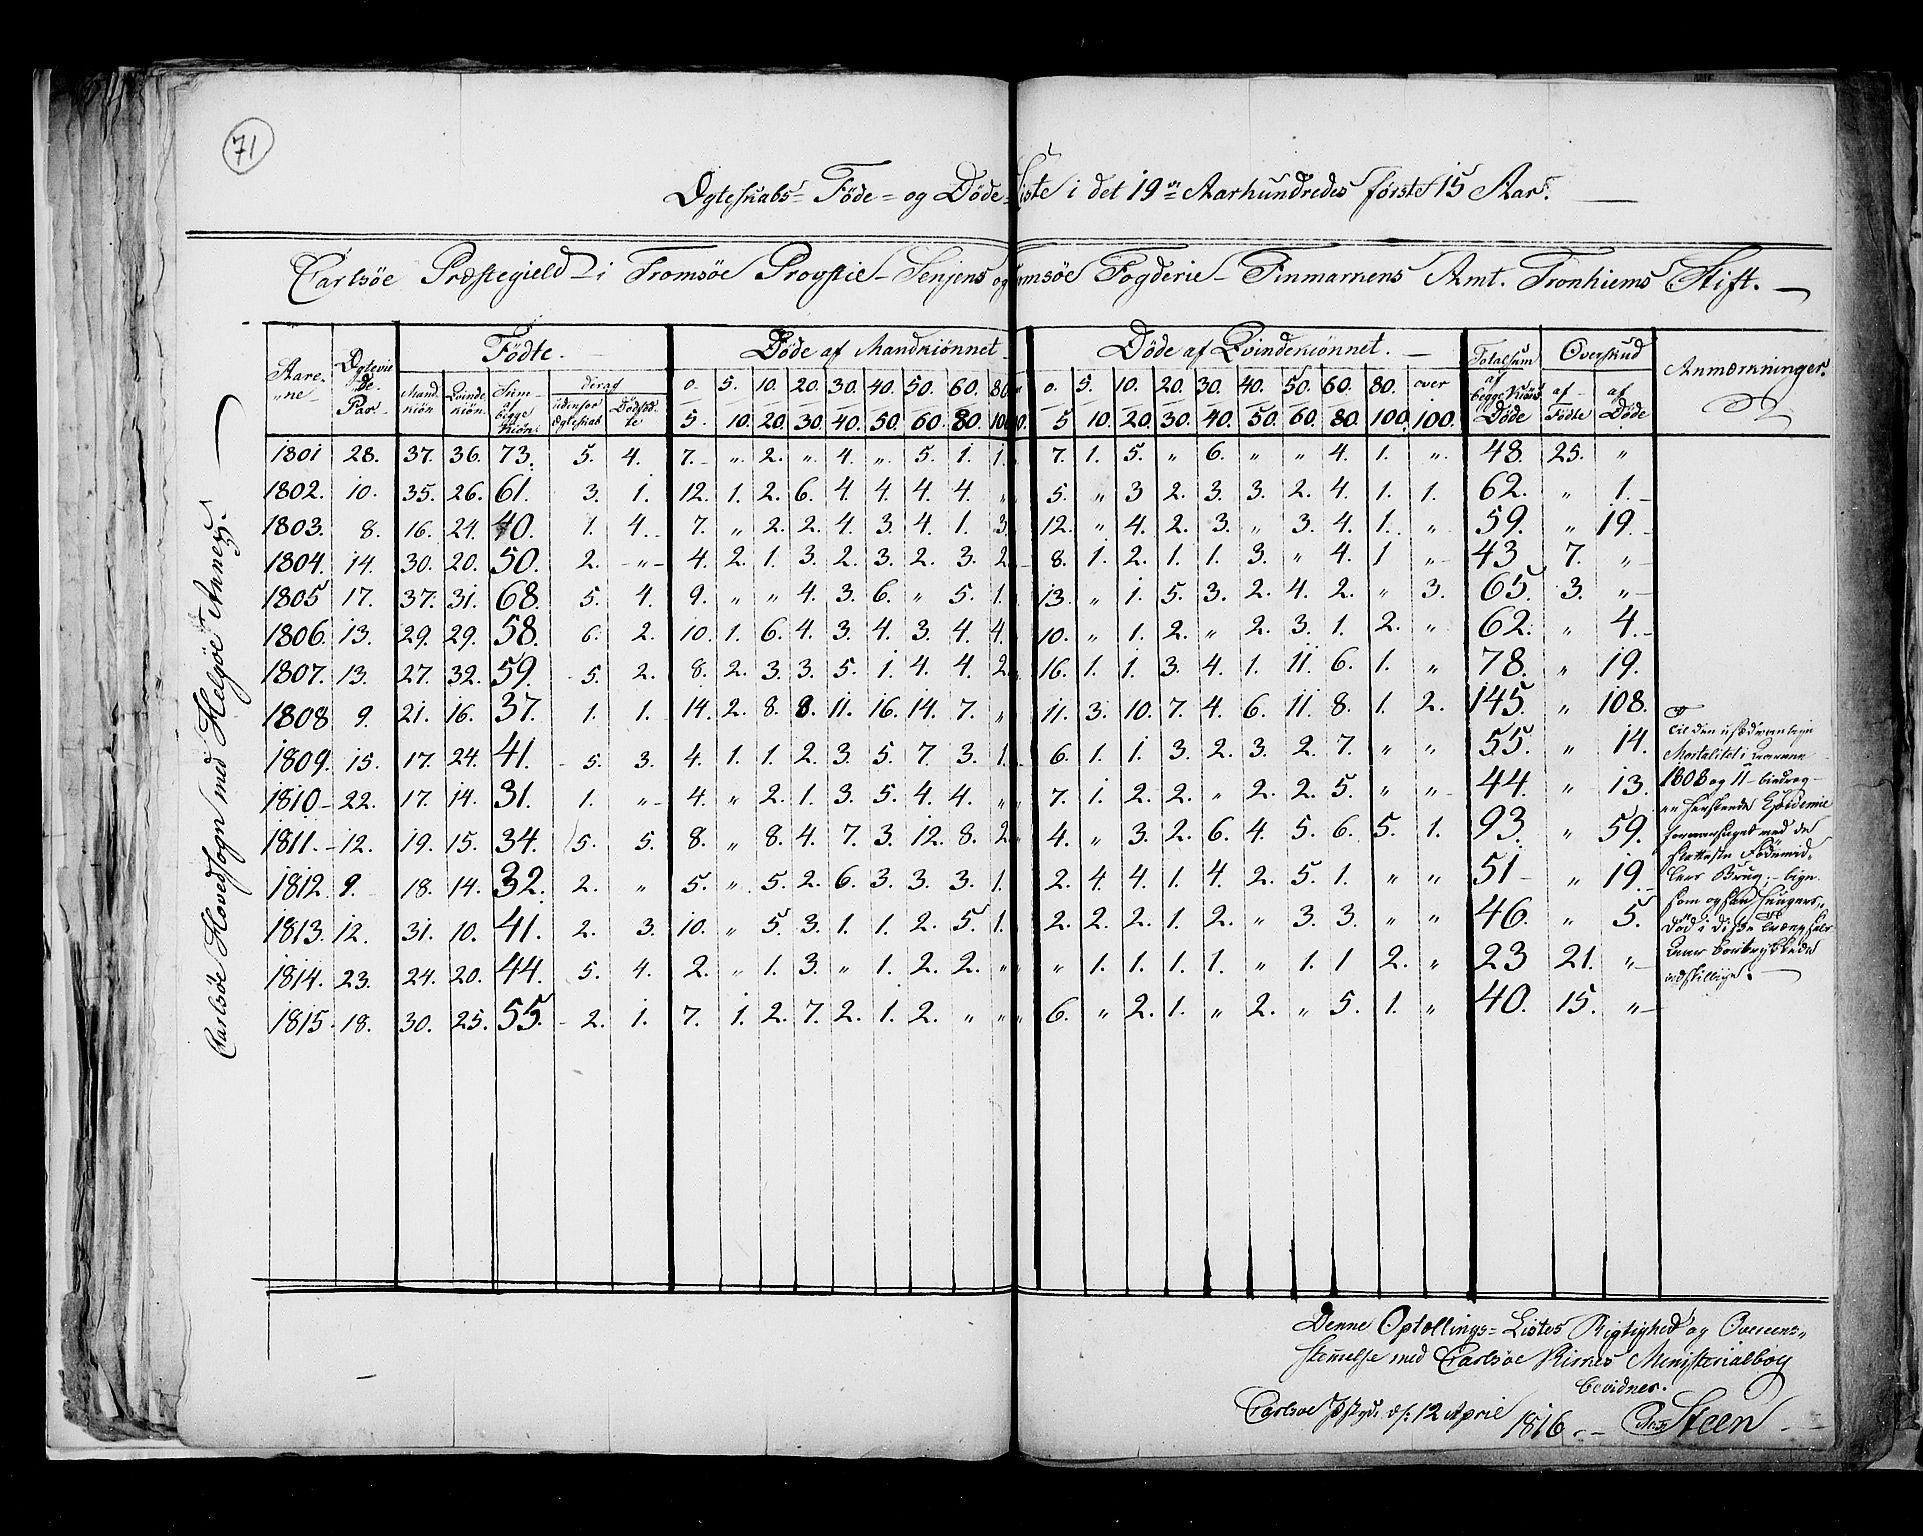 71
Ægteskabs- Föde- og Döde-Liste i det 19de Aarhundredes første 15 Aar.
Carlsöe Præstegield i Tromsöe Provstie - Senjens og Tromsöe Fogderie - Finmarkens Amt. Tronhiems Stift.
Carlsöe Hovedsogn med Helgöe Annex.
Aarene | Ægtevide Par | Födte. | Döde af Mandkiönnet | Döde af Qvindekiönnet. | Totalsum af begge Kiöns Döde | Overskud | Anmærkninger.
Mandkiön | Qvindekiön | Sum af begge Kiön | deraf | udenfor Ægteskab | Dödföd-te | af Födte | af Döde
0. 5. 10. 20. 30. 40. 50. 60. 80. | 0. 5. 10. 20. 30. 40. 50. 60. 80. over
5. 10. 20. 30. 40. 50. 60. 80. 100. | 5 10. 20. 30. 40. 50. 60. 80. 100. 100.
1801 28. 37. 36. 73. 5. 4. 7. " 2. " 4. " 5. 1. 1. 7. 1. 5. " 6. " " 4. 1. " 48. 25. "
1802. 10. 35. 26. 61. 3. 1. 12. 1. 2. 6. 4. 4. 4. 4. " 5. " 3 2. 3. 3. 2. 4. 1. 1. 62. " 1.
1803. 8. 16. 24. 40. 1. 4. 7. " 2. 2. 4. 3. 4. 1. 3 12. " 4. 2. 3. " 3. 4. 1. " 59. " 19.
1804. 14. 30. 20. 50. 2. " 4. 2. 1. 3. 2. 3. 2. 3. 2. 8. 1. 2. 1. 1. 3. " 4. 1 " 43 7. "
1805 17. 37. 31. 68. 5. 4. 9. " " 4. 3. 6. " 5. 1. 13. " 1. 5. 3. 2. 4. 2. " 3. 65. 3. "
1806. 13. 29. 29. 58. 6. 2. 10. 1. 6. 4. 3. 4. 3. 4. 4. 10. " 1. 2. " 2. 3. 1. 2. " 62. " 4.
1807. 13. 27. 32. 59. 5. 2. 8. 2. 3. 3. 5. 1. 4. 4. 2. 16. 1. 1. 3. 4. 1. 11. 6. 1. " 78. " 19.
1808 9. 21. 16. 37. 1. 1. 14. 2. 8. 8. 11. 16. 14. 7. " 11. 3. 10. 7. 4. 6. 11. 8. 1. 2. 145. " 108.
1809. 15. 17. 24. 41. 5. 3. 4. 1. 1. 2. 3. 5. 7. 3. 1. 6. 1. 1. 3. 2. 3. 2. 7. " " 55. " 14.
1810 22. 17. 14. 31. 1. " 4. " 2. 1. 3. 5. 4. 4. " 7. 1. 2. 2. " 2. 2. 5. " " 44. " 13.
1811. 12. 19. 15. 34. 5. 5. 8. " 8. 4. 7. 3. 12. 8. 2 4. " 3. 2. 6. 4. 5. 6. 5. 1. 93. " 59.
1812. 9. 18. 14. 32. 2. " 5. " 5. 2. 6. 3. 3. 3. 1. 2. 4. 4. 1. 4. 2. 5. 1. " " 51 " 19.
1813. 12. 31. 10. 41. 2. 3. 10. " 5. 3. 1. 1. 2. 5. 1. 2. 2. 2. 1. 2. " 3. 3. " " 46. " 5.
1814. 23. 24. 20. 44. 5. 4. 2. " 1. 3. " 1. 2. 2. " " 1. 1. 1. 1. " 1. 1 2. " 23 21. "
1815. 18. 30. 25. 55. 2. 1. 7. 1. 2. 7. 2. 1. 2. " " 6. " 2. 1. " 2. " 5. 1. " 40. 15. "
Til den usædvanlige
Mortalitet i Aarene
1808 og 11 bidrog
herskende Epidemie
foraarsaget med de
sletteste Födemid-
lers Brug, lige
som og saa Hungers-
död i disse
Denne Optællings-Listes Rigtighed og Overeens-
stemelse med Carlsöe Kirkes Ministerialbog
bevidner.
Carlsöe Pstgd. d. 12 April 1816. Steen